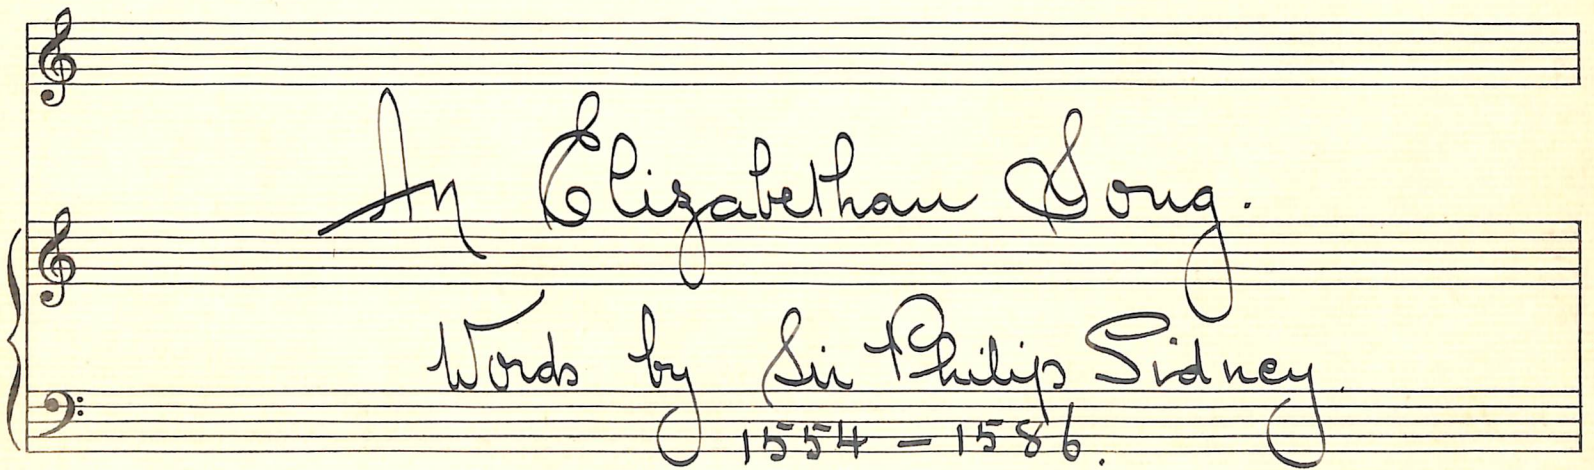 An Elizabethan Song.
Words by Sir Philip Sidney.
1554 - 1586.